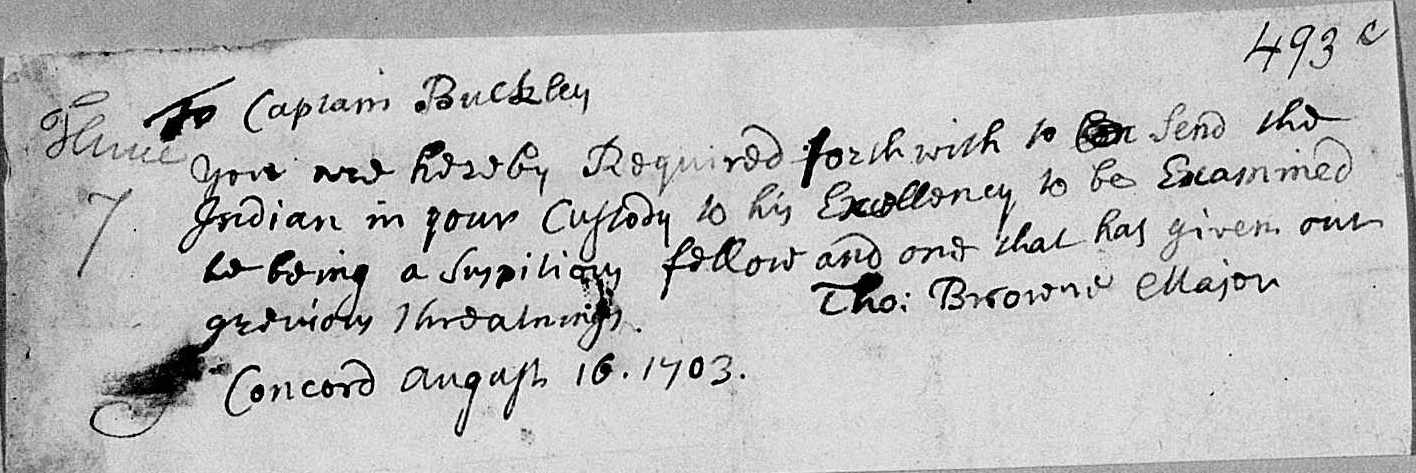 493 c
To Captain Buckley
You are hereby Required forthwith to Send the
Indian in your Custody to his Excellency to be Examined
he being a Suspitious fellow and one that has given out
grevious threatnings.
Tho: Browne Major
Concord August 16. 1703.
7